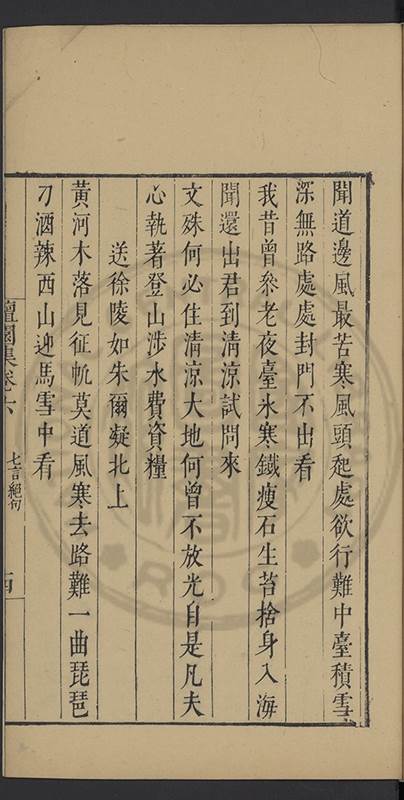 聞道邊風最苦寒風頭起處欲行難中臺積雪
深無路處處封門不出看
我昔曾參老夜臺氷寒鐵瘦石生苔捨身入海
聞還出君到清凉試問來
文殊何必住清凉大地何曾不放光自是凡夫
心執著登山涉水費資糧
送徐陵如朱爾凝北上
黄河木落見征帆莫道風寒去路難一曲琵琶
刁酒辣西山迎馬雪中看
集卷六
七言絕句
四